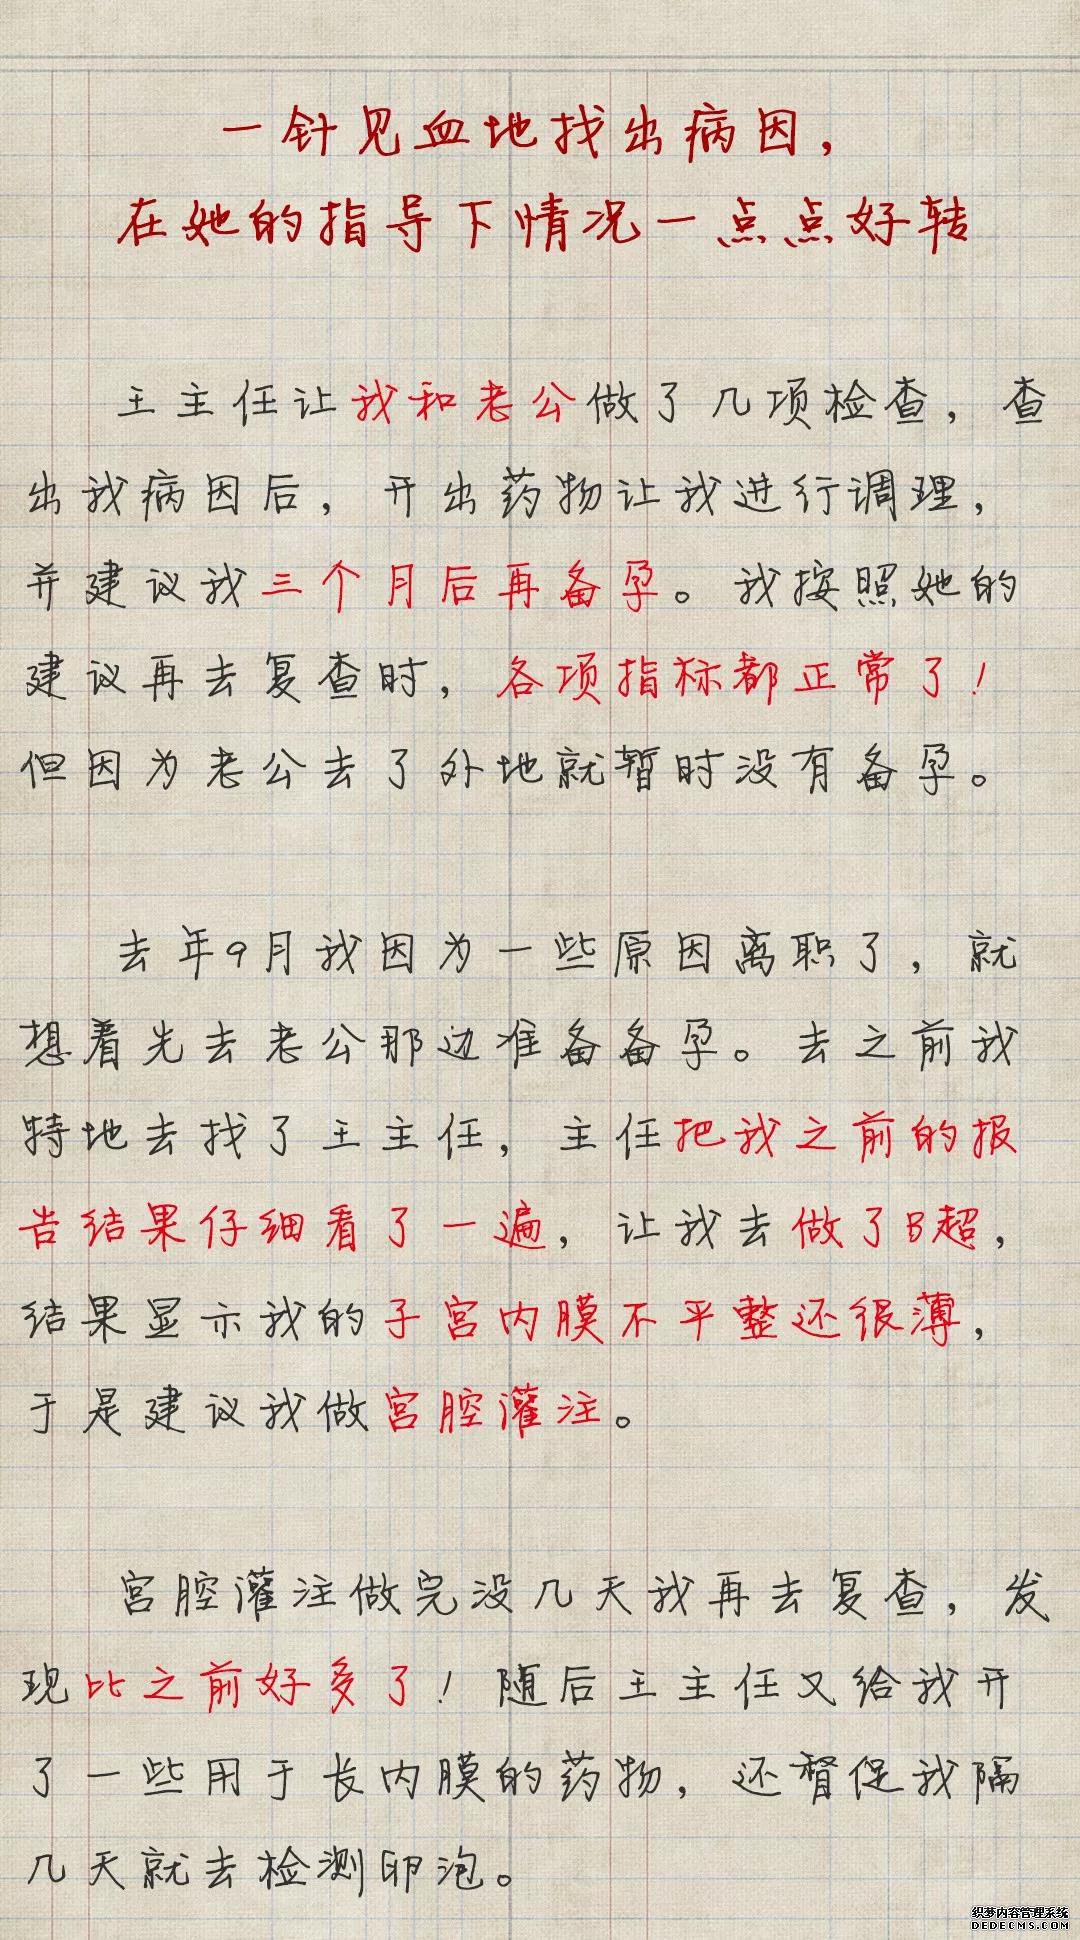 一针见血地找出病因，
在她的指导下情况一点点好转
王主任让我和老公做了几项检查，查
出我病因后，开出药物让我进行调理，
并建议我三个月后再备孕。我按照她的
建议再去复查时，各项指标都正常了！
但因为老公去了外地就暂时没有备孕。
去年9月我因为一些原因离职了，就
想着先去老公那边准备备孕。去之前我
特地去找了王主任，主任把我之前的报
告结果仔细看了一遍，让我去做了B超，
结果显示我的子宫内膜不平整还很薄，
于是建议我做宫腔灌注。
宫腔灌注做完没几天我再去复查，发
现比之前好多了！随后王主任又给我开
了一些用于长内膜的药物，还督促我隔
几天就去检测卵泡。
织梦内容管理系统
DEDECMS.COM